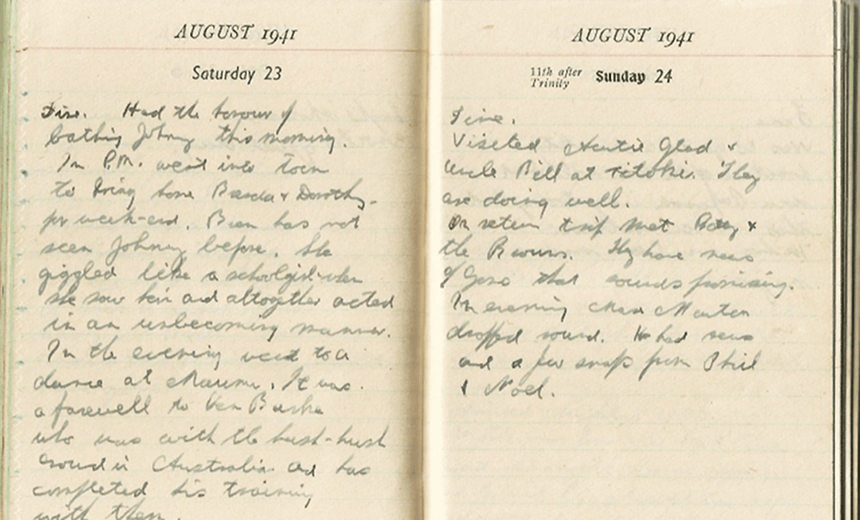 AUGUST 1941
Saturday 23
Fine. Had the honour of
bathing Johnny this morning.
In P.M. went into town
to bring home & Dorothy
for week-end. has not
seen Johnny before. She
giggled like a schoolgirl when
she saw him and altogether acted
in an unbecoming manner.
In the evening went to a
dance at . It was
a farewell to
who was with the hush-hush
crowd in Australia and has
completed his training
with them.
AUGUST 1941
11th after Trinity Sunday 24
Fine.
Visited Auntie Glad &
Uncle Bill at Titoki. They
are doing well.
On return trip met &
the Browns. They have news
of that sounds promising.
In evening
dropped round. He had news
and a few snaps from Phil
& Noel.